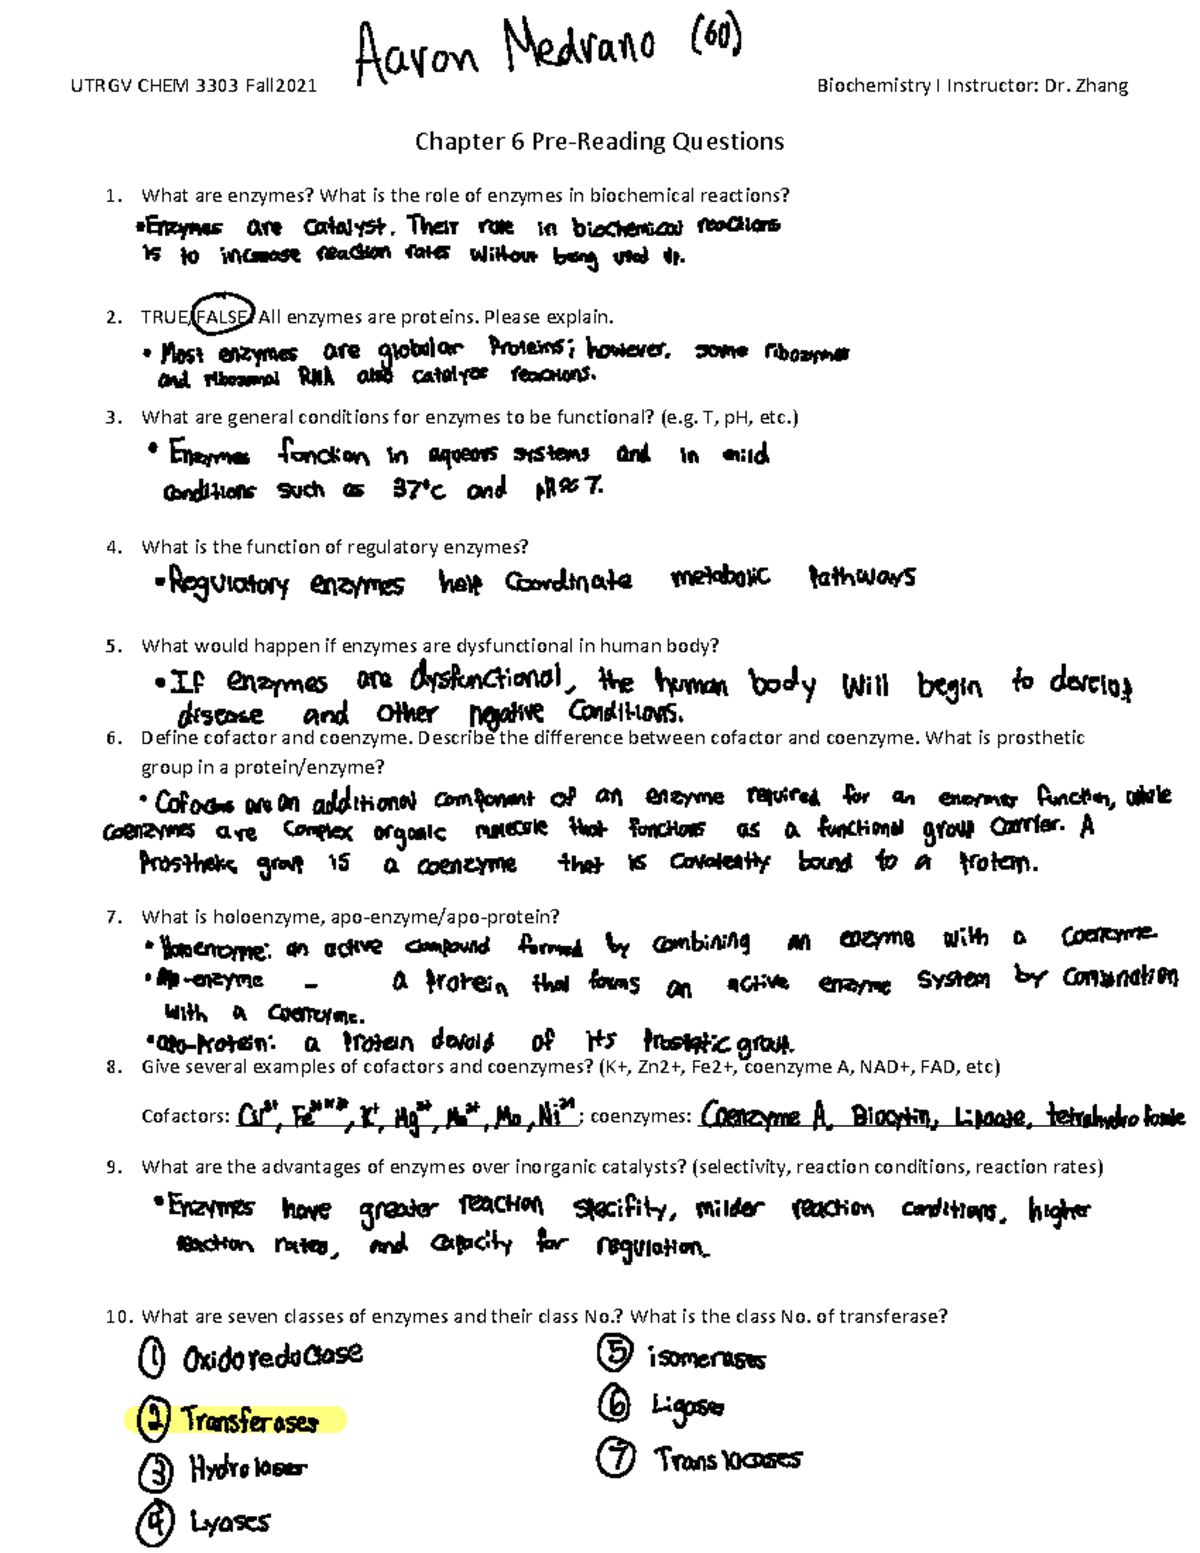 Aaron Medrano (60)
UTRGV CHEM 3303 Fall2021 Biochemistry I Instructor: Dr. Zhang
Chapter 6 Pre-Reading Questions
1. What are enzymes? What is the role of enzymes in biochemical reactions?
•Enzymes are catalyst. Their role in biochemical reactions
is to increase reaction rates without being used up.
2. TRUE/FALSE/ All enzymes are proteins. Please explain.
• Most enzymes are globular Proteins; however, some ribozymes
and ribosomal RNA also catalyze reactions.
3. What are general conditions for enzymes to be functional? (e.g. T, pH, etc.)
• Enzymes function in aqueous systems and in mild
conditions such as 37°C and pH≈7.
4. What is the function of regulatory enzymes?
•Regulatory enzymes help coordinate metabolic Pathways
5. What would happen if enzymes are dysfunctional in human body?
•If enzymes are dysfunctional, the human body will begin to develop
disease and other negative conditions.
6. Define cofactor and coenzyme. Describe the difference between cofactor and coenzyme. What is prosthetic
group in a protein/enzyme?
• are an additional component of an enzyme required for an function, while
coenzymes are complex organic molecule that functions as a functional group carrier. A
Prosthetic group is a coenzyme that is covalently bound to a Protein.
7. What is holoenzyme, apo-enzyme/apo-protein?
• Holoenzyme: an active compound formed by combining an enzyme with a coenzyme.
• Apo-enzyme – a Protein that forms an active enzyme system by combination
with a coenzyme.
•apo-Protein: a Protein devoid of its group.
8. Give several examples of cofactors and coenzymes? (K+, Zn2+, Fe2+, coenzyme A, NAD+, FAD, etc)
Cofactors: K⁺, Mo, Ni²⁺; coenzymes: Coenzyme A, Biocytin,
9. What are the advantages of enzymes over inorganic catalysts? (selectivity, reaction conditions, reaction rates)
•Enzymes have greater reaction specifity, milder reaction conditions, higher
reaction rates, and capacity for regulation.
10. What are seven classes of enzymes and their class No.? What is the class No. of transferase?
① Oxidoreductase ⑤ isomerases
② Transferases ⑥ Ligases
③ Hydrolases ⑦ Translocases
④ Lyases